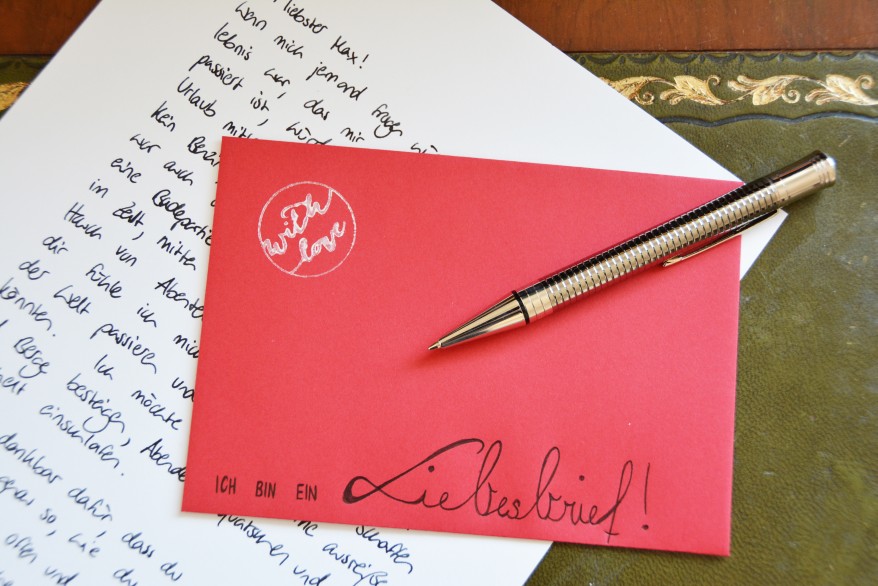 liebster Max!
Wenn mich jemand fragen
lebnis war, das mir
passiert ist, würd
Urlaub mitt
Kein Benzi
war auch
eine Badepartie
im Zelt, mitten
Hauch von Abenteu
dir fühle ich mich
der Welt passieren und
könnten. Ich möchte
Berge besteigen, Abende
einschlafen.
dankbar dafür, dass du
so, wie
offen und
schaffen
ausreiße
quatschen und
with
love
ICH BIN EIN Liebesbrief!